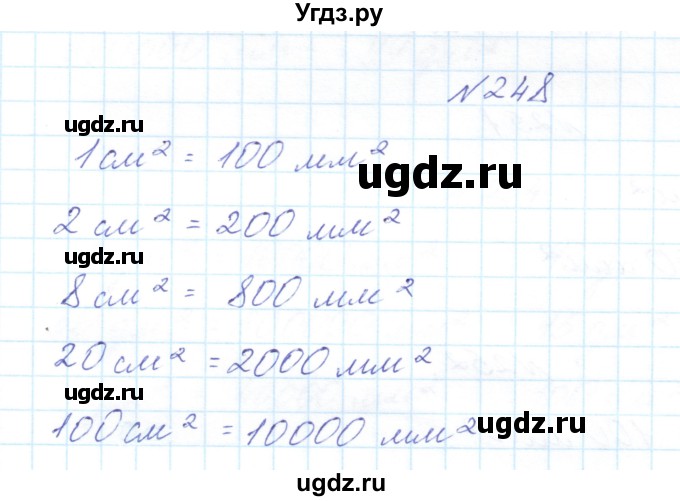 Угдз.ру
№248
ugdz.ru
1 см² = 100 мм²
ugdz.ru
ugdz.ru
2 см² = 200 мм²
ugdz.ru
8 см² = 800 мм²
ugdz.ru
20 см² = 2000 мм²
ugdz.ru
100 см² = 10000 мм²
ugdz.ru
ugdz.ru